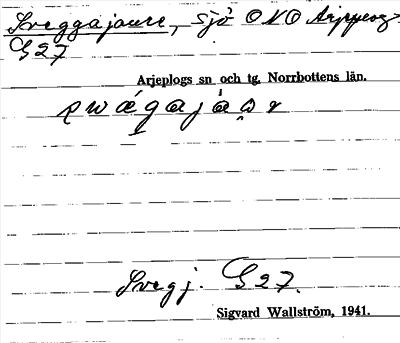 Sveggajaure, sjö ONO Arjeplog
G27
Arjeplogs sn och tg. Norrbottens län.
Svegj. G27.
Sigvard Wallström, 1941.